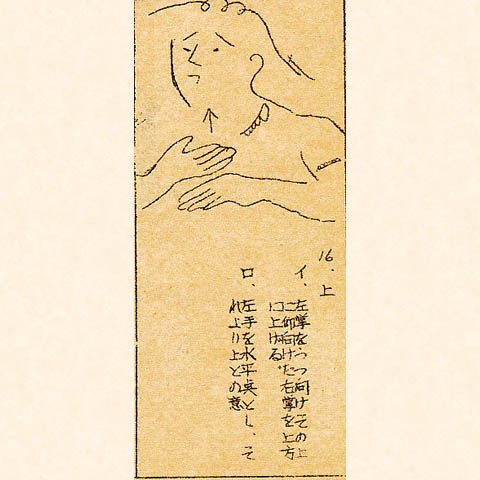 16.上
イ、左掌をうつ向けその上
に仰向けた右掌を上方
に上げる。
ロ、左手を水平点とし、そ
れより上との意